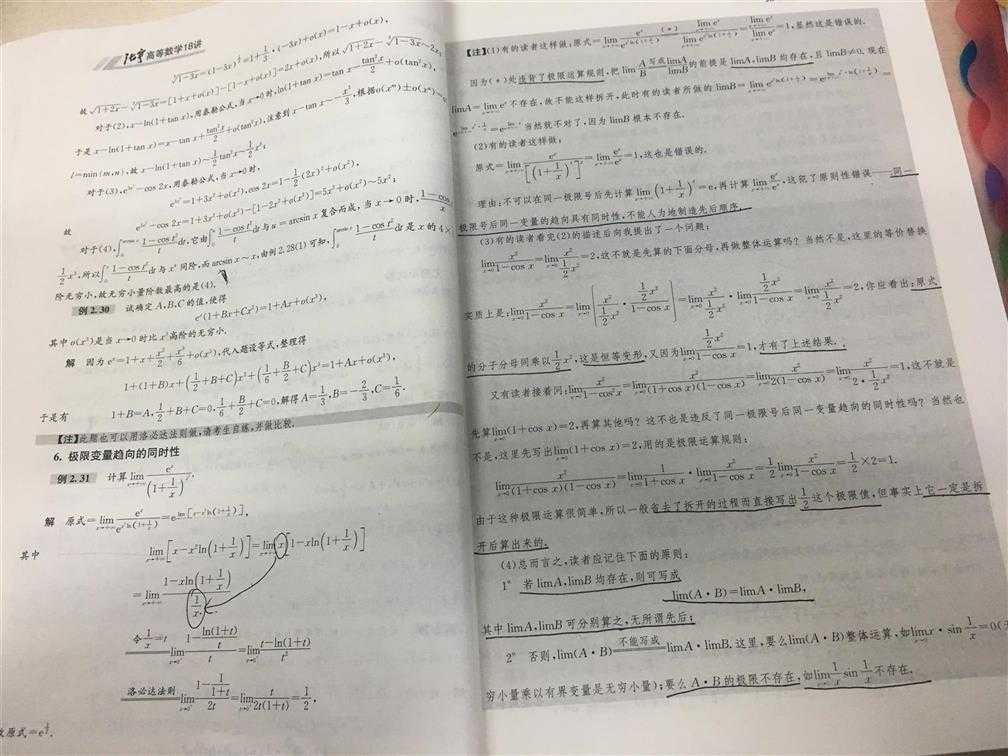 张宇高等数学18讲
∛(1-3x)=(1-3x)^{1/3}=1+1/3·(-3x)+o(x)=1-x+o(x),
故 √(1+2x)-∛(1-3x)=[1+x+o(x)]-[1-x+o(x)]=2x+o(x),所以√(1+2x)-∛(1-3x)~2x;
对于(2),x-ln(1+tan x),用泰勒公式,当x→0时,ln(1+tan x)=tan x-tan²x/2+o(tan²x),
于是 x-ln(1+tan x)=x-tan x+tan²x/2+o(tan²x),注意到x-tan x~-x³/3,根据o(xᵐ)±o(xⁿ)=
l=min{m,n},故x-ln(1+tan x)~1/2 tan²x~1/2 x²;
对于(3),用泰勒公式,当x→0时,
故
对于(4),
阶无穷小,故无穷小量阶数最高的是(4).
例2.30 试确定A,B,C的值,使得
eˣ(1+Bx+Cx²)=1+Ax+o(x³),
其中o(x³)是当x→0时比x³高阶的无穷小.
解 因为eˣ=1+x+x²/2+x³/6+o(x³),代入题设等式,整理得
1+(1+B)x+(1/2+B+C)x²+(1/6+B/2+C)x³=1+Ax+o(x³),
于是有 1+B=A,1/2+B+C=0,1/6+B/2+C=0,解得A=1/3,B=-2/3,C=1/6.
【注】此题也可以用洛必达法则做,请考生自练,并做比较.
6. 极限变量趋向的同时性
例2.31 计算lim_{x→+∞} eˣ/(1+1/x)^{x²}.
解 原式=lim_{x→+∞} eˣ/e^{x²ln(1+1/x)}=e^{lim_{x→+∞}[x-x²ln(1+1/x)]},
其中 lim_{x→+∞}[x-x²ln(1+1/x)]=lim_{x→+∞} x[1-xln(1+1/x)]
=lim_{x→+∞} (1-xln(1+1/x))/(1/x)
令1/x=t lim_{t→0⁺} (1-ln(1+t)/t)/t=lim_{t→0⁺} (t-ln(1+t))/t²
洛必达法则 lim_{t→0⁺} (1-1/(1+t))/(2t)=lim_{t→0⁺} t/(2t(1+t))=1/2,
故原式=e^{1/2}.
【注】(1)有的读者这样做:原式=lim_{x→+∞} eˣ/e^{x²ln(1+1/x)} (*) =1,显然这是错误的.
因为(*)处违背了极限运算规则,把lim A/B写成limA/limB的前提是limA,limB均存在,且limB≠0.现在
limA=lim_{x→+∞}eˣ不存在,故不能这样拆开,此时有的读者所做的limB=
当然就不对了,因为limB根本不存在.
(2)有的读者这样做:
原式=lim_{x→+∞} eˣ/[(1+1/x)ˣ]ˣ=lim_{x→+∞} eˣ/eˣ=1,这也是错误的.
理由:不可以在同一极限号后先计算lim_{x→+∞}(1+1/x)ˣ=e,再计算lim_{x→+∞} eˣ/eˣ,这犯了原则性错误——同一
极限号后同一变量的趋向具有同时性,不能人为地制造先后顺序.
(3)有的读者看完(2)的描述后向我提出了一个问题:
lim_{x→0} x²/(1-cos x)=lim_{x→0} x²/(1/2 x²)=2,这不就是先算的下面分母,再做整体运算吗?当然不是,这里的等价替换
实质上是:lim_{x→0} x²/(1-cos x)=lim_{x→0}[x²/(1/2 x²)·(1/2 x²)/(1-cos x)]=lim_{x→0} x²/(1/2 x²)·lim_{x→0} (1/2 x²)/(1-cos x)=lim_{x→0} x²/(1/2 x²)=2,你应看出:原式
的分子分母同乘以1/2 x²,这是恒等变形,又因为lim_{x→0} (1/2 x²)/(1-cos x)=1,才有了上述结果.
又有读者接着问:lim_{x→0} x²/sin²x=lim_{x→0} x²/((1+cos x)(1-cos x))=lim_{x→0} x²/(2(1-cos x))=lim_{x→0} x²/(2·1/2 x²)=1,这不就是
先算lim_{x→0}(1+cos x)=2,再算其他吗?这不也是违反了同一极限号后同一变量趋向的同时性吗?当然也
不是,这里先写出lim_{x→0}(1+cos x)=2,用的是极限运算规则:
lim_{x→0} x²/((1+cos x)(1-cos x))=lim_{x→0} 1/(1+cos x)·lim_{x→0} x²/(1-cos x)=1/2 lim_{x→0} x²/(1-cos x)=1/2×2=1.
由于这种极限运算很简单,所以一般省去了拆开的过程而直接写出1/2这个极限值,但事实上它一定是拆
开后算出来的.
(4)总而言之,读者应记住下面的原则:
1° 若limA,limB均存在,则可写成
lim(A·B)=limA·limB,
其中limA,limB可分别算之,无所谓先后;
2° 否则,lim(A·B) 不能写成 limA·limB.这里,要么lim(A·B)整体运算,如lim_{x→0} x·sin 1/x=0(无
穷小量乘以有界变量是无穷小量);要么A·B的极限不存在,如lim_{x→0} 1/x sin 1/x不存在.